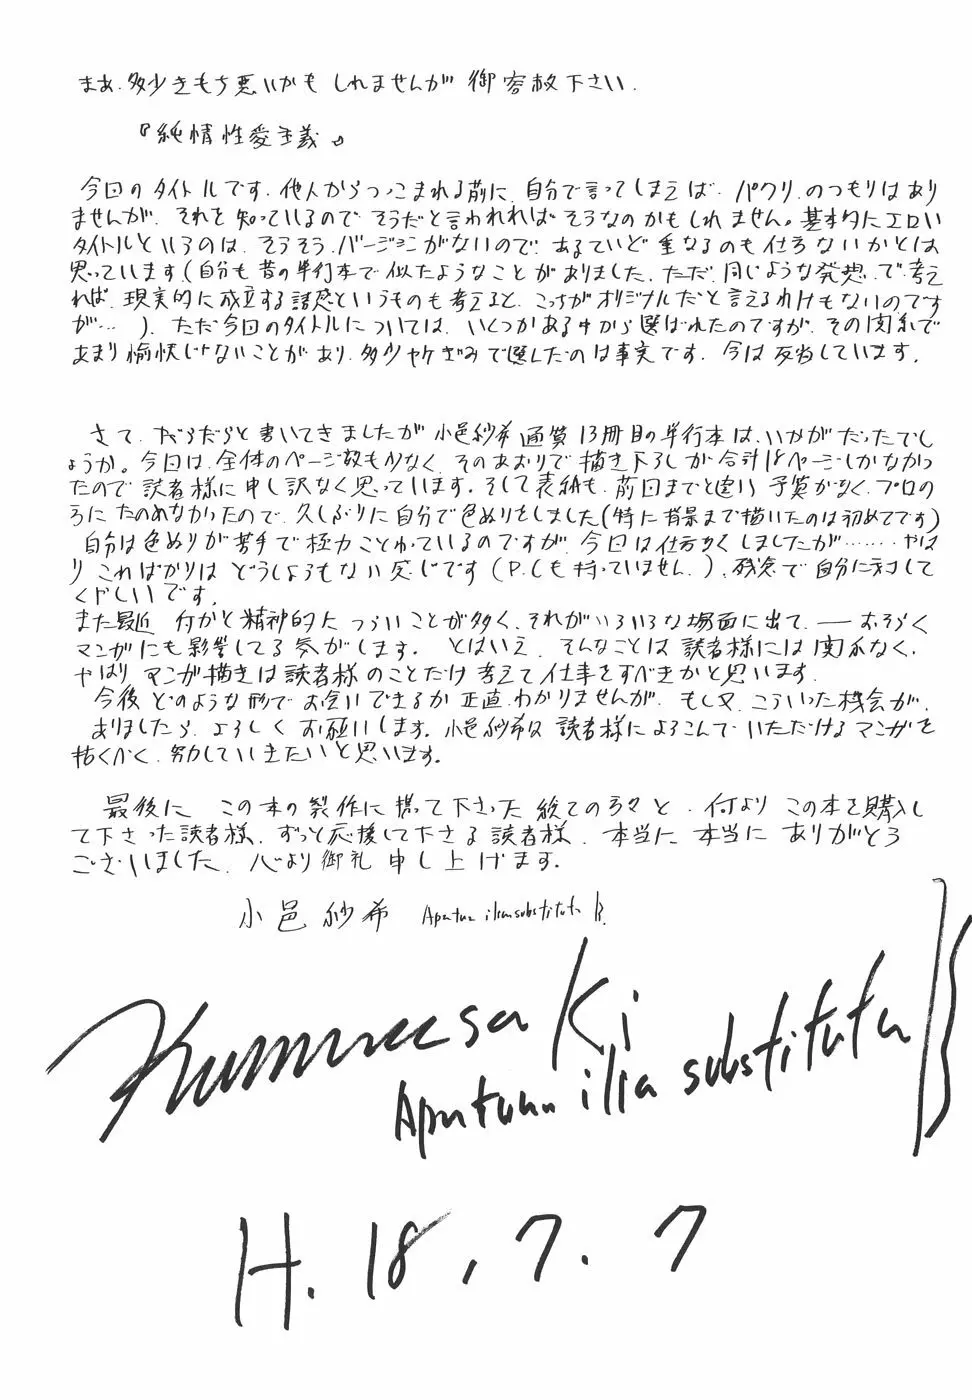 まあ、多少きもち悪いかもしれませんが御容赦下さい.
『純情性愛主義』
今回のタイトルです. 他人からつっこまれる前に、自分で言ってしまえば、パクリ、のつもりはあり
ませんが、それを知っているのでそうだと言われればそうなのかもしれません。基本的にエロい
タイトルというのは、そうそうバージョンがないので、あるていど重なるのも仕方ないかとは
思っています(自分も昔の単行本で似たようなことがありました、ただ、同じような発想、で考え
れば、現実的に成立する誘惑というものも考えると、こっちがオリジナルだと言えるわけもないのです
が…). ただ今回のタイトルについては、いくつかある中から選ばれたのですが、その関係で
あまり愉快じゃないことがあり、多少ヤケぎみで選んだのは事実です. 今は反省しています.
さて、だらだらと書いてきましたが小邑紗希通算13冊目の単行本は、いかがだったでし
ょうか。今回は、全体のページ数も少なく、そのあおりで描き下ろしが合計18ページしかなかっ
たので読者様に申し訳なく思っています. そして表紙も、前回までと違い予算がなく、プロの
方にたのめなかったので、久しぶりに自分で色ぬりをしました(特に背景まで描いたのは初めてです)
自分は色ぬりが苦手で極力ことわっているのですが、今回は仕方なくしましたが……… やは
りこればかりはどうしようもない感じです(P.Cも持っていません.)、残念で自分に対して
くやしいです.
また最近何かと精神的につらいことが多く、それがいろいろな場面に出て、― おそらく
マンガにも影響してる気がします. とはいえ、そんなことは読者様には関係なく、
やはりマンガ描きは読者様のことだけ考えて仕事をすべきかと思います.
今後どのような形でお会いできるか正直わかりませんが、もし又、こういった機会が、
ありましたら、よろしくお願いします. 小邑紗希は読者様によろこんでいただけるマンガを
描くべく、努力していきたいと思います.
最後に この本の製作に携って下さった総ての方々と、何よりこの本を購入し
て下さった読者様、ずっと応援して下さる読者様、本当に本当にありがとう
ございました、心より御礼申し上げます.
小邑紗希 Apatura ilia substituta B.
Kumuresaki
Apatura ilia substituta B
H.18,7.7